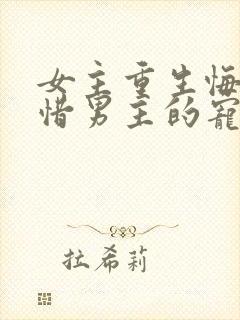 女主重生悔
惜男主的寵
拉希莉